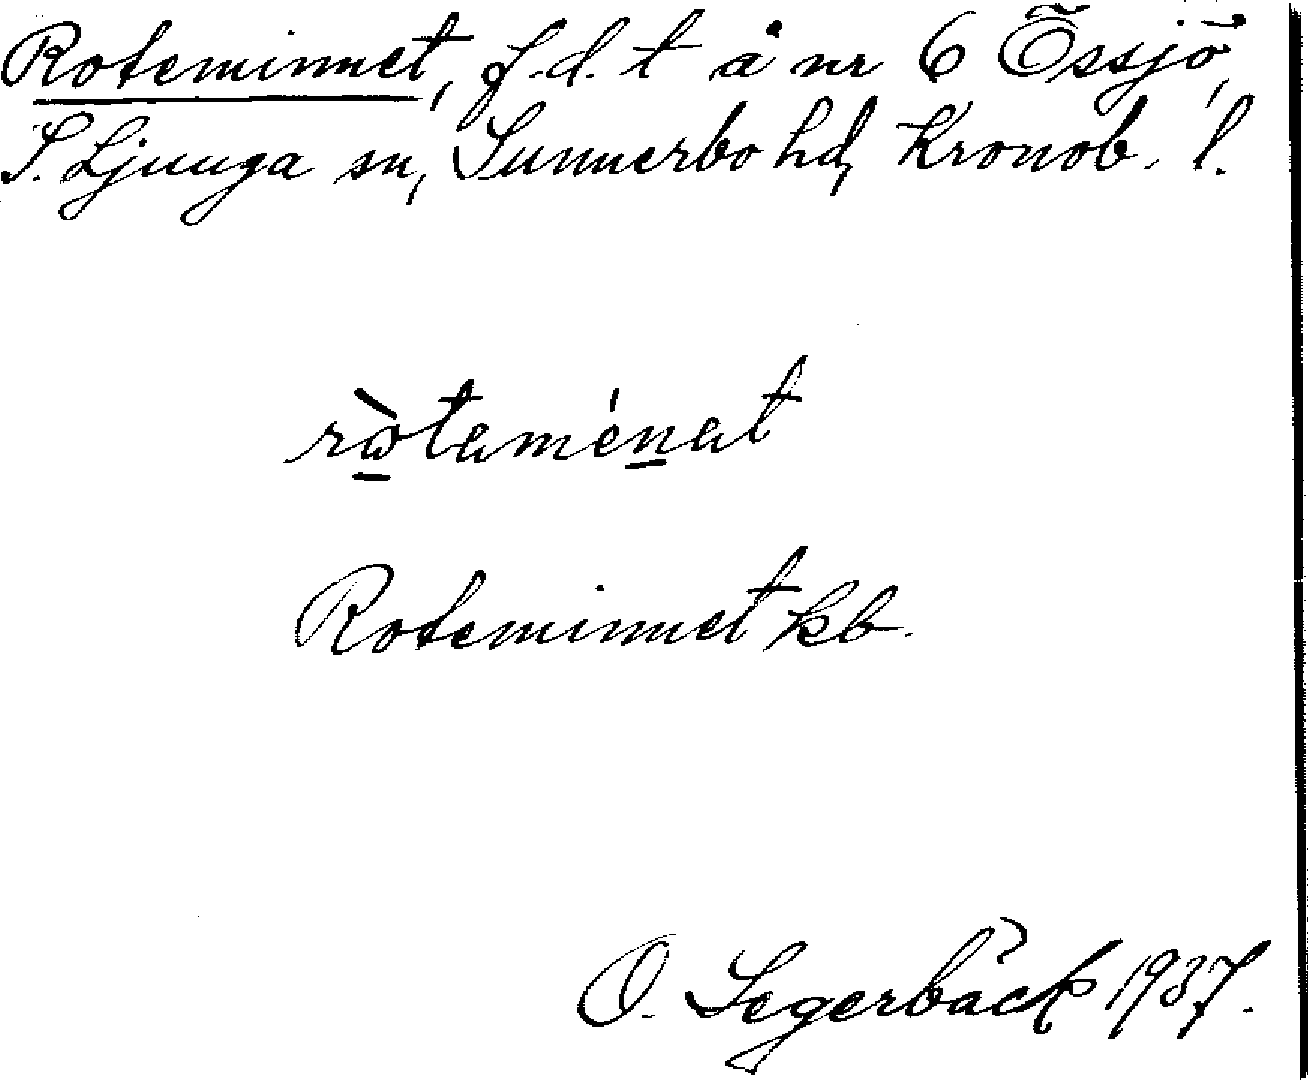 Roteminnet, f.d. t å nr 6 Össjö,
S. Ljunga sn, Sunnerbo hd, Kronob. l.
ròtaménat
Roteminnet kb.
O. Segerbäck 1937.